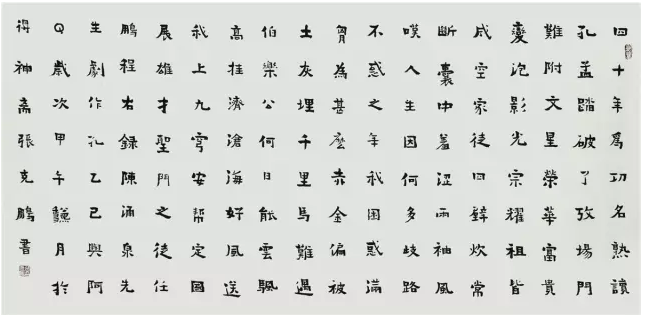 四十年爲功名熟讀
孔孟踏破了攷場門
難附文星榮華富貴
變泡影光宗耀祖皆
成空家徒四壁炊常
斷囊中羞澀兩袖風
嘆人生因何多歧路
不惑之年我困惑滿
胷為甚麽赤金偏被
土灰埋千里馬難遇
伯樂公何日能雲飄
高挂濟滄海好風送
我上九穹安帮定國
展雄才聖門之徒任
鵬程右録陳涌泉先
生劇作孔乙己與阿
Q歲次甲午月於
得神斋張克鵬書